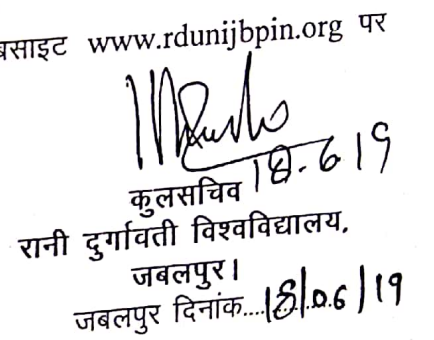 बसाइट www.rdunijbpin.org पर
18.6.19
कुलसचिव
रानी दुर्गावती विश्वविद्यालय,
जबलपुर।
जबलपुर दिनांक....18/06/19